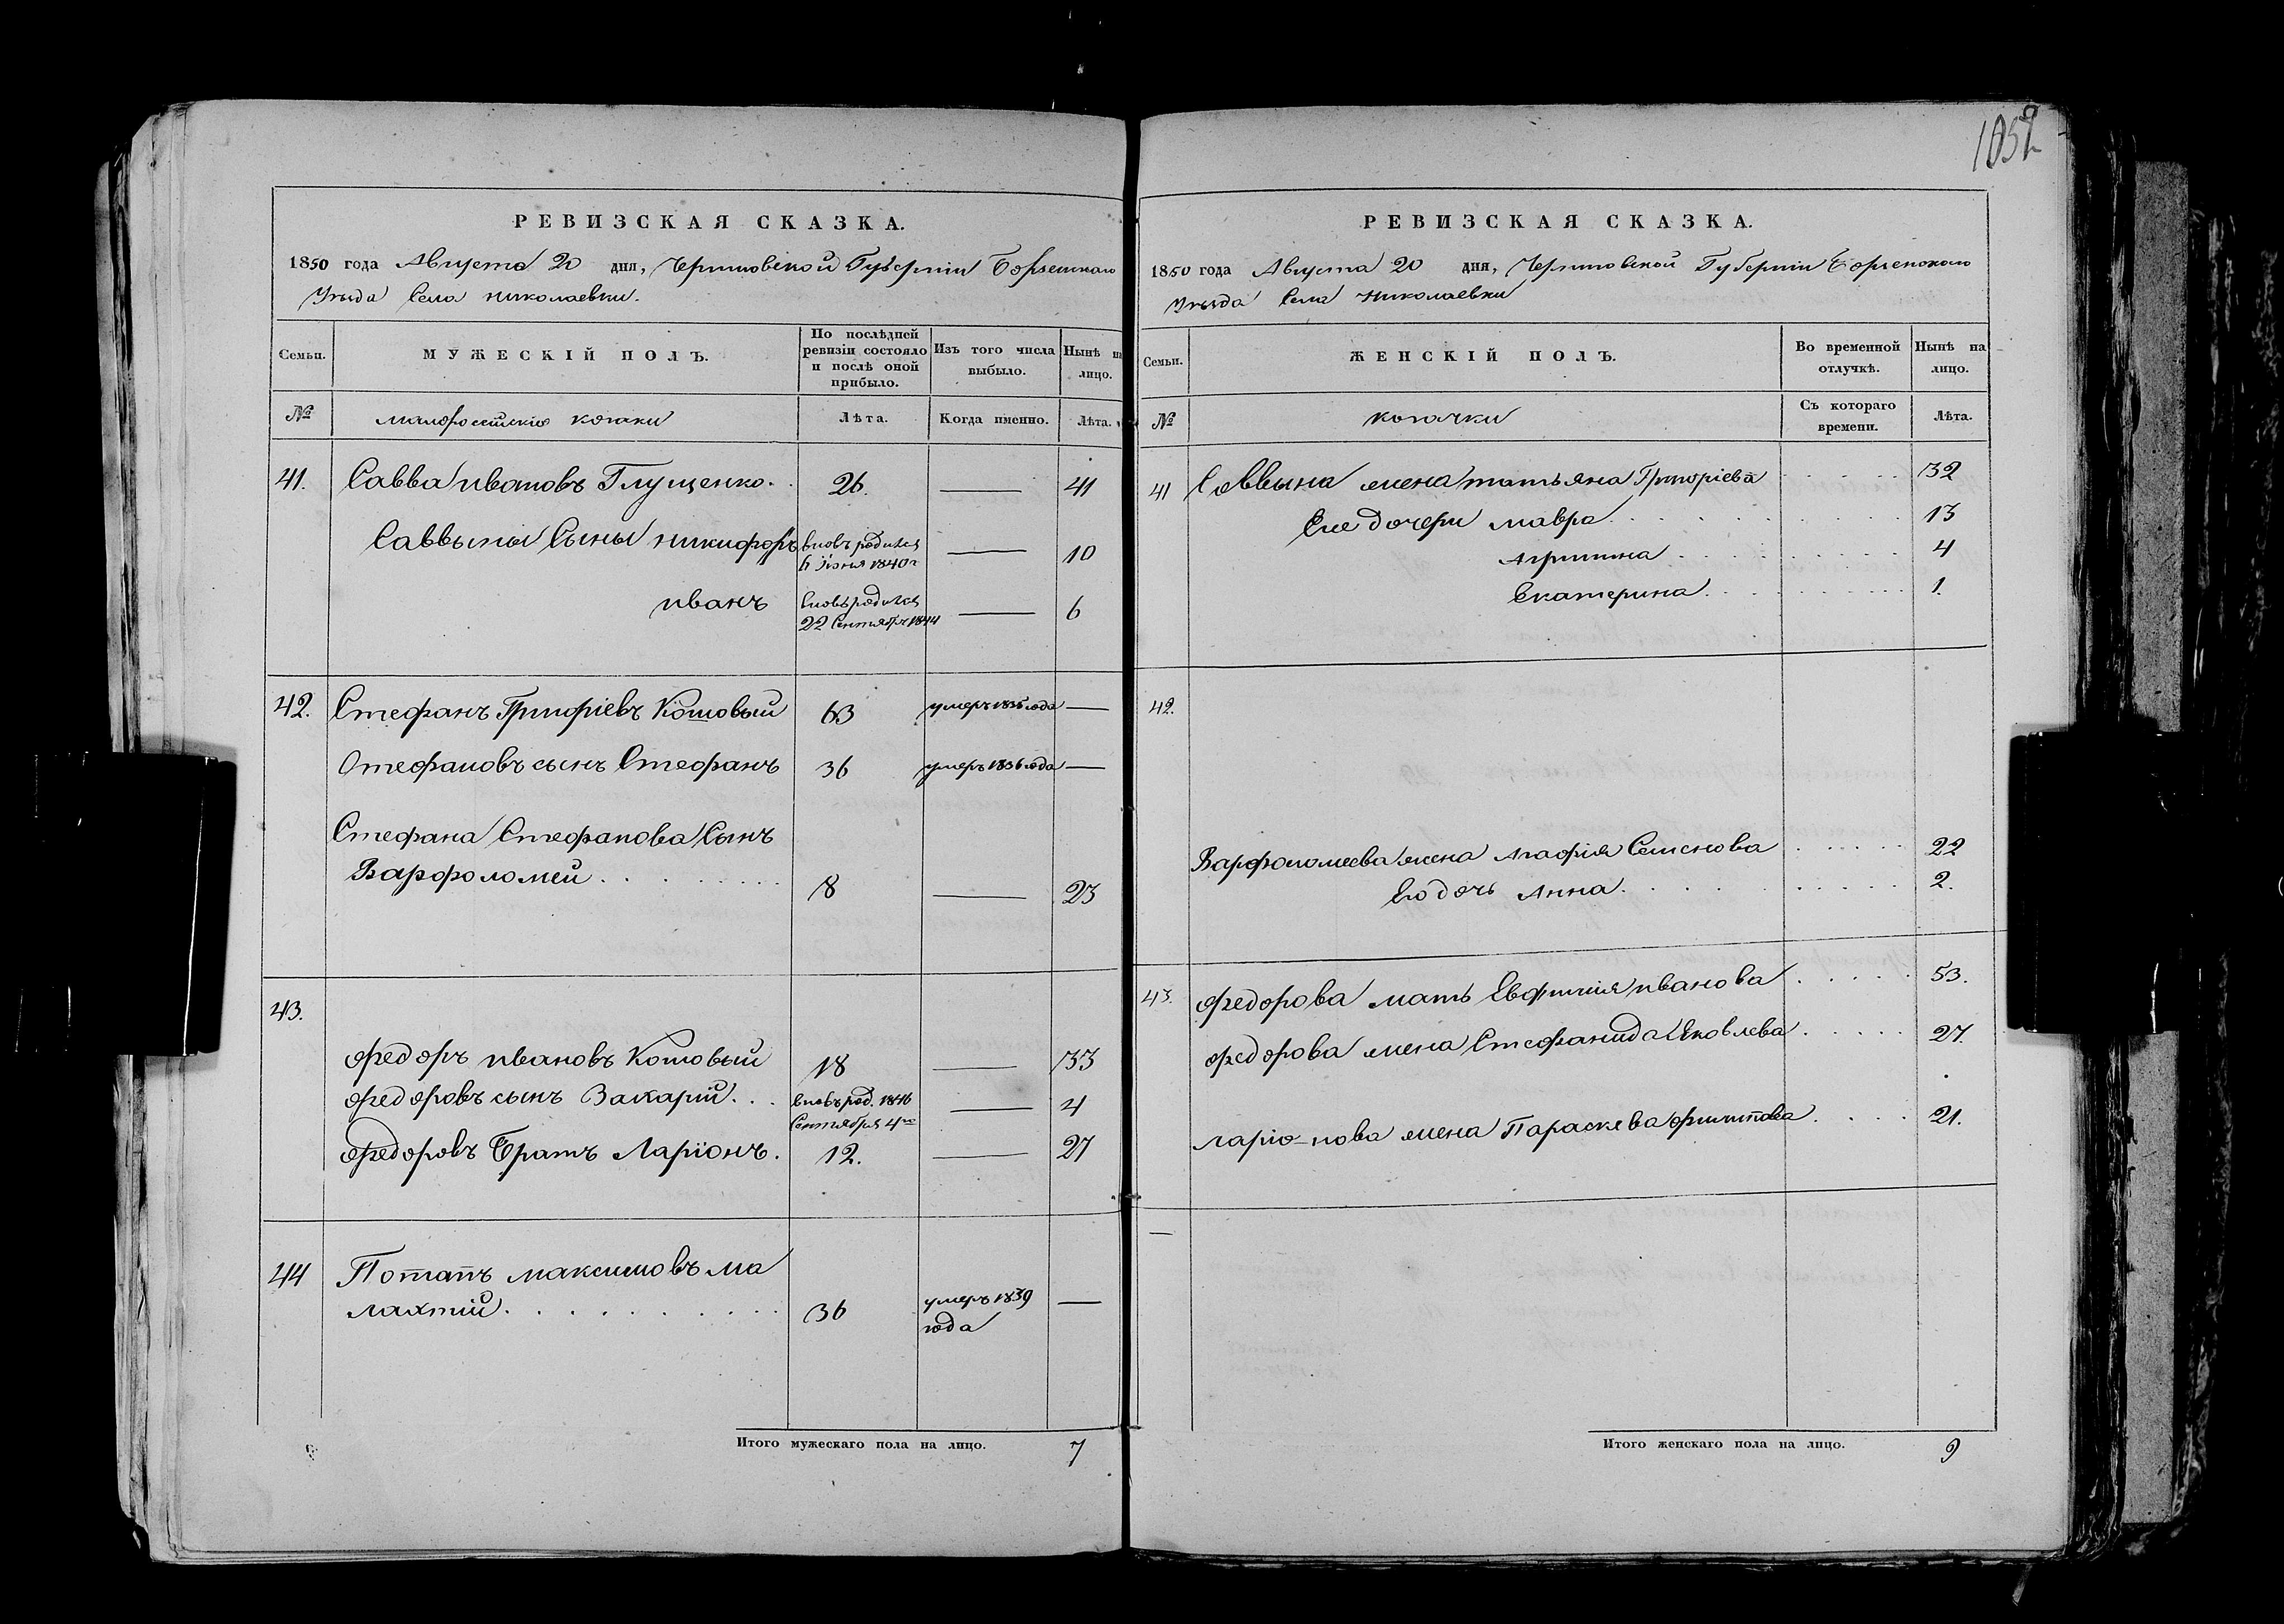 1052
РЕВИЗСКАЯ СКАЗКА.
1850 года Августа 20 дня, Черниговской Губерніи Борзенскаго
Уѣзда Села Николаевки.
Семьи. МУЖЕСКІЙ ПОЛЪ. По послѣдней ревизіи состояло и послѣ оной прибыло. Изъ того числа выбыло. Нынѣ на лицо.
№ малороссійскіе козаки Лѣта. Когда именно. Лѣта.
41. Савва Ивановъ Глущенко. 26. — 41
Саввыны Сыны Никифоръ вновь родился 6 Іюня 1840 г — 10
Иванъ вновь родился 22 Сентября 1844 — 6
42. Стефанъ Григоріевъ Котовый 63 умеръ 1836 года —
Стефановъ сынъ Стефанъ 36 умеръ 1836 года —
Стефана Стефанова Сынъ
Варфоломей 8 — 23
43.
Федоръ Ивановъ Котовый 18 — 33
Федоровъ сынъ Захарій. вновь род. 1846 Сентября 4го — 4
Федоровъ Братъ Ларіонъ. 12. — 27
44 Потапъ Максимовъ Ма
лахтій 36 умеръ 1839 года —
Итого мужескаго пола на лицо. 7
РЕВИЗСКАЯ СКАЗКА.
1850 года Августа 20 дня, Черниговской Губерніи Борзенскаго
Уѣзда Села Николаевки
Семьи. ЖЕНСКІЙ ПОЛЪ. Во временной отлучкѣ. Нынѣ на лицо.
№ козачки Съ котораго времени. Лѣта.
41 Саввына жена Татьяна Григоріева 32
Его дочери Мавра 13
Агрипина 4
Екатерина 1.
42.
Варфоломеева жена Агафія Семенова 22
Его дочь Анна 2.
43. Федорова мать Евфимія Иванова 53.
Федорова жена Стефанида Яковлева 27.
Ларіо-нова жена Параскева Филипова 21.
—
Итого женскаго пола на лицо. 9